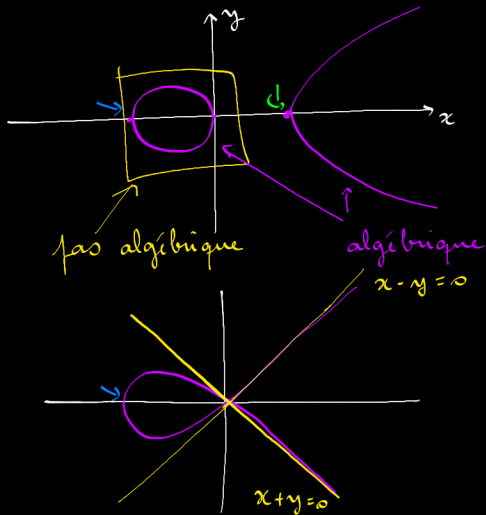 y
x
pas algébrique
algébrique
x - y = 0
x + y = 0